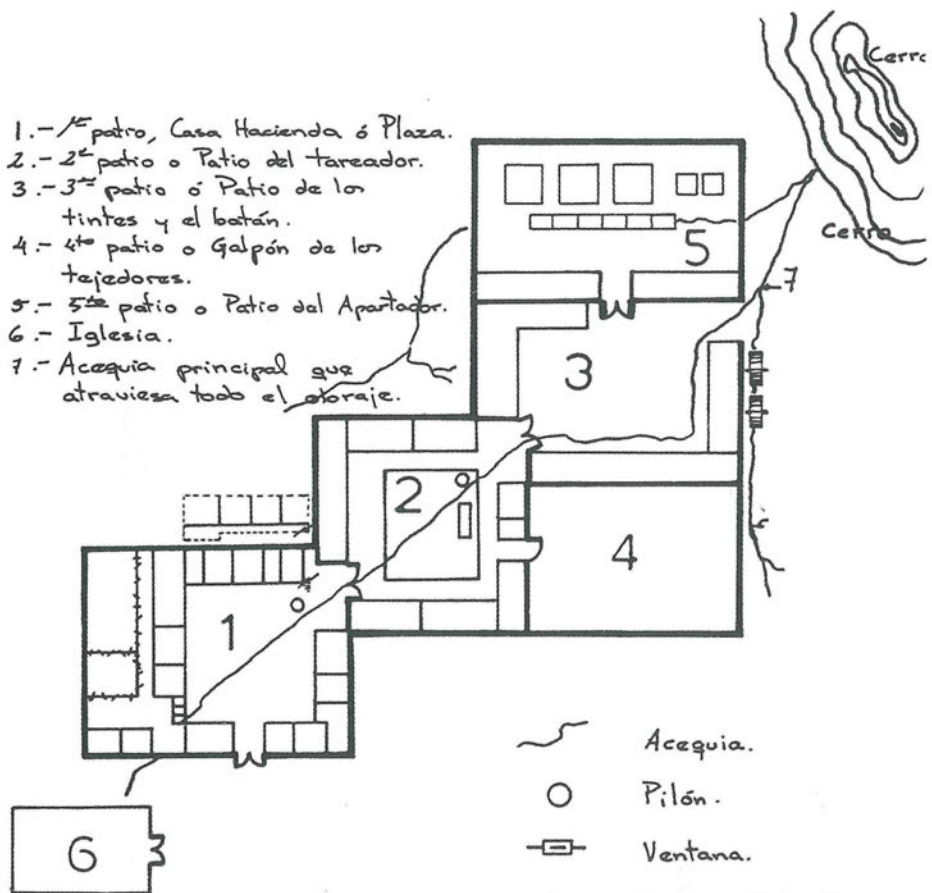 1.- 1er patio, Casa Hacienda ó Plaza.
2.- 2do patio o Patio del tareador.
3.- 3er patio ó Patio de los
tintes y el batán.
4.- 4to patio o Galpón de los
tejedores.
5.- 5to patio o Patio del Apartador.
6.- Iglesia.
7.- Acequia principal que
atraviesa todo el obraje.
Cerro
Cerro
5
7
3
2
4
1
6
Acequia.
Pilón.
Ventana.